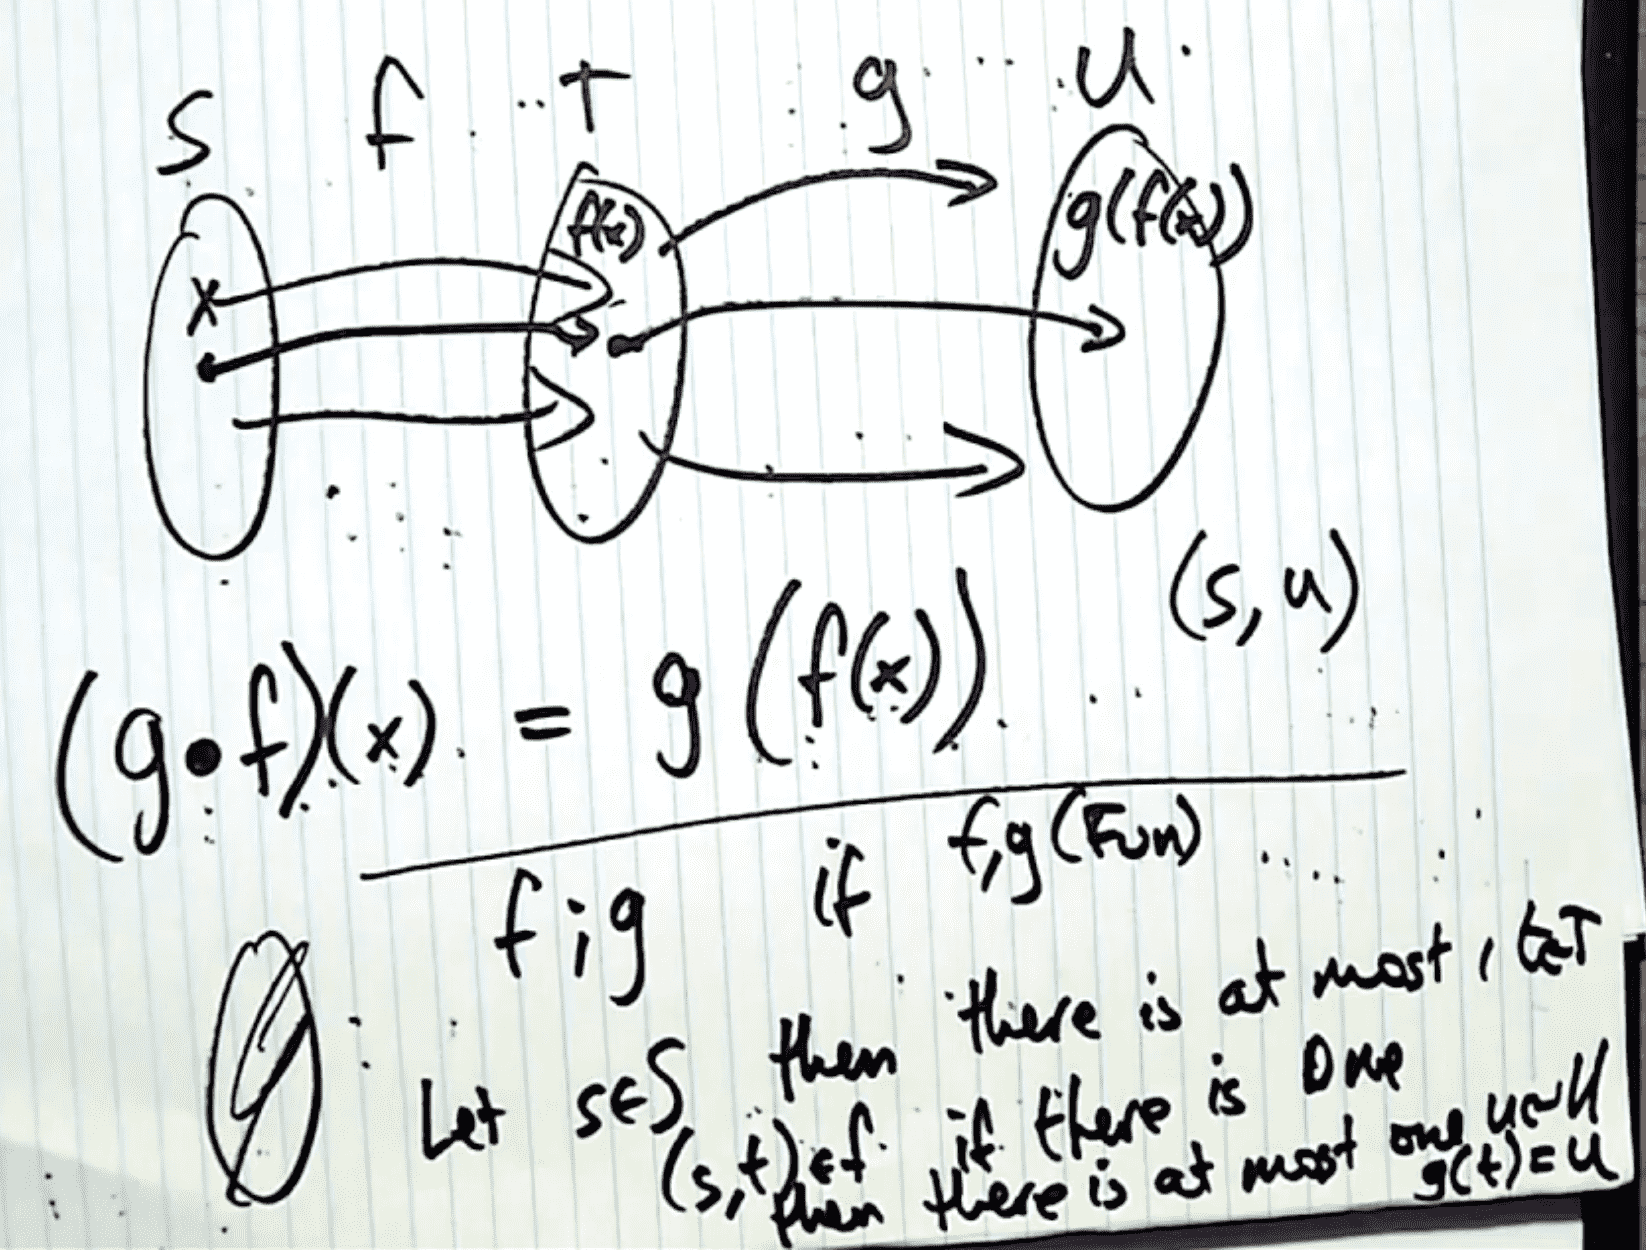 S f T g U
f(x) g(f(x))
(s, u)
(g•f)(x) = g(f(x))
f;g if f,g (Fun)
Let s∈S then there is at most 1 t∈T
(s,t)∈f if there is One
then there is at most one u∈U
g(t)=u